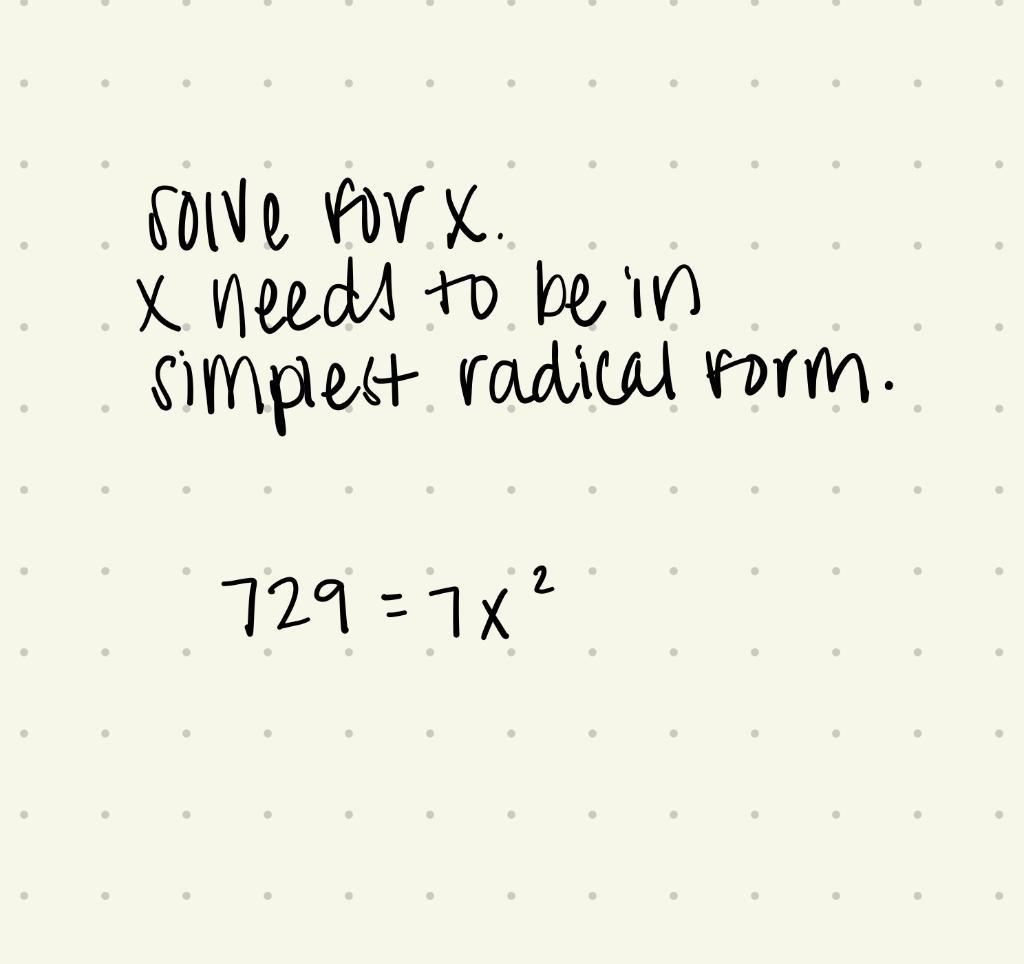 solve for x.
x needs to be in
simplest radical form.
729 = 7x²